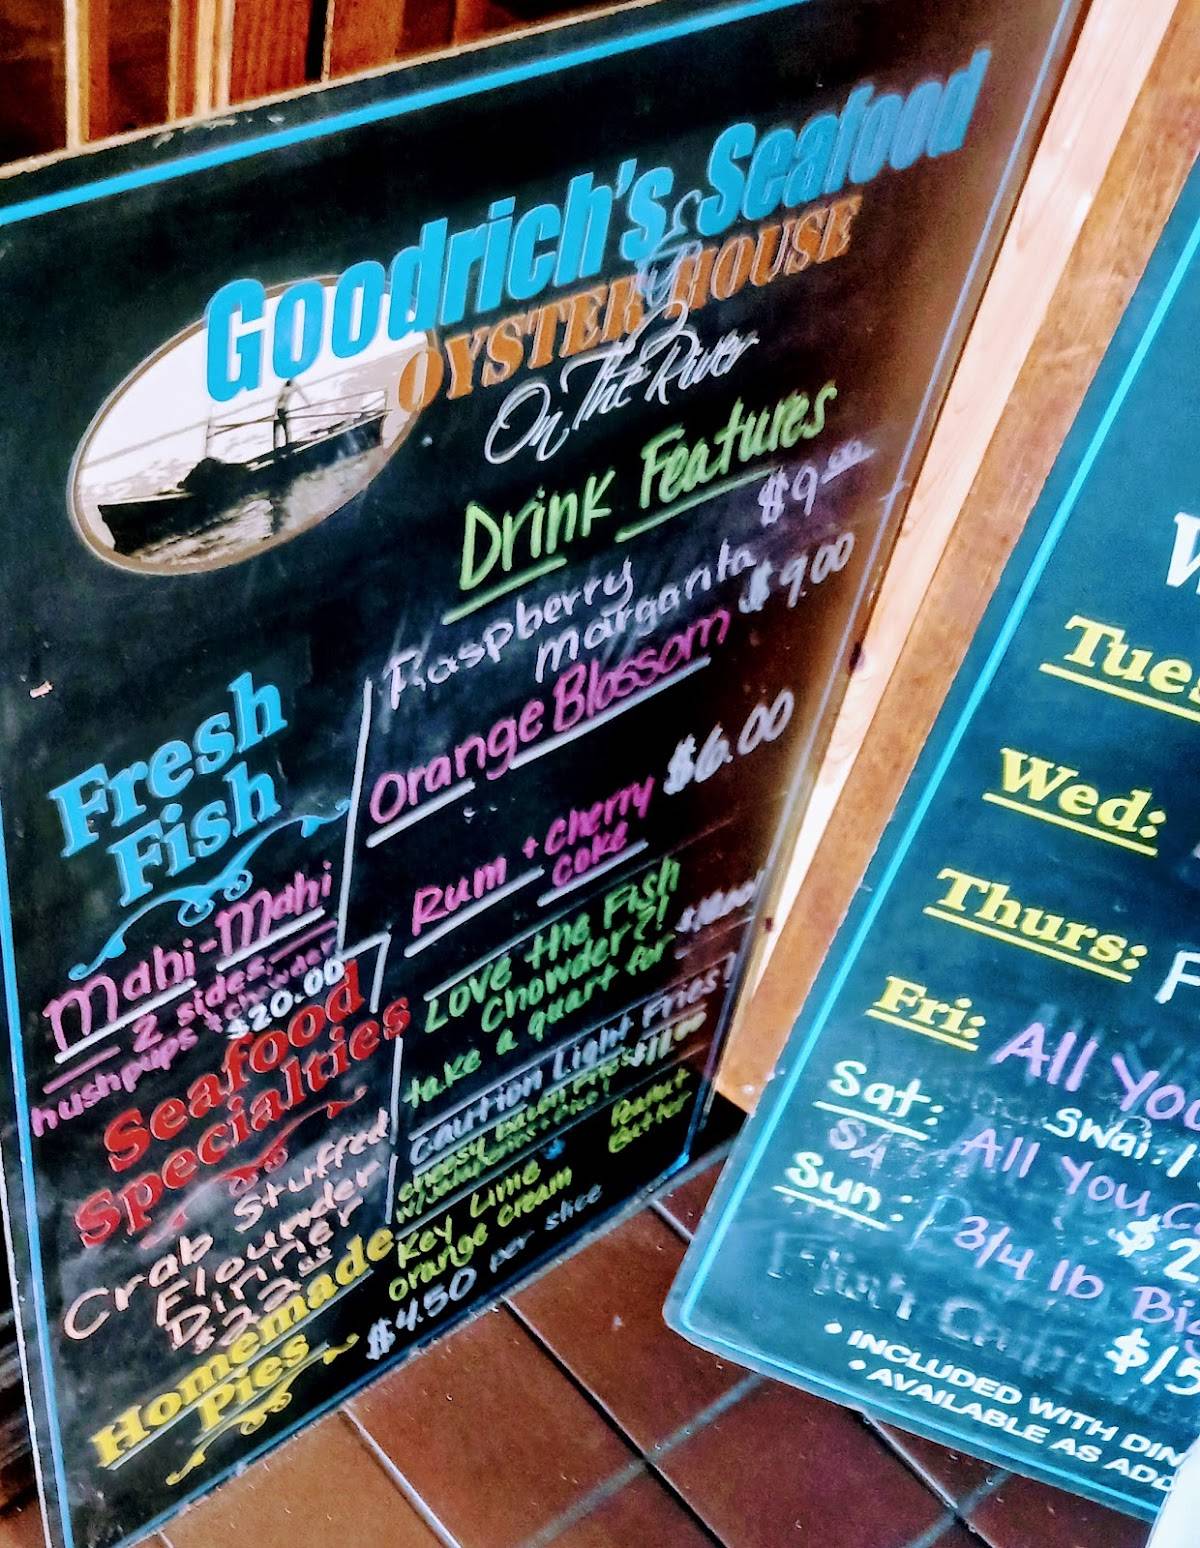 Goodrich's Seafood
& OYSTER HOUSE
On The River
Drink Features
Raspberry $9.00
Margarita
Orange Blossom $9.00
Rum + Cherry $6.00
Coke
Love the Fish
Chowder?!
take a quart for
Caution Light Fries!
$11.00
Fresh
Fish
Mahi-Mahi
2 sides,
hushpups + chowder
$20.00
Seafood
Specialties
Crab Stuffed
Flounder
Dinner
$22.00
Homemade
Pies
Key Lime
Peanut
Butter
Orange Cream
$4.50 per slice
Tues
Wed:
Thurs: F
Fri: All You
Swai /
Sat: All You C
$2
Sun: 3/4 lb Big
$15
• INCLUDED WITH DIN
• AVAILABLE AS ADD